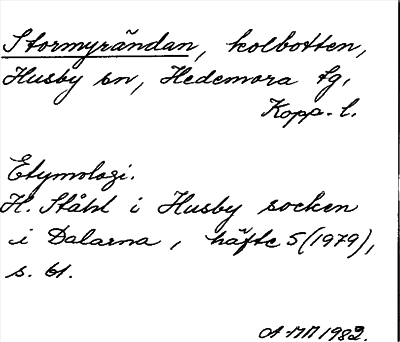 Stormyrändan, kolbotten,
Husby sn, Hedemora tg,
Kopp. l.
Etymologi.
H. Ståhl i Husby socken
i Dalarna, häfte 5 (1979),
s. 61.
A-MM 1982.